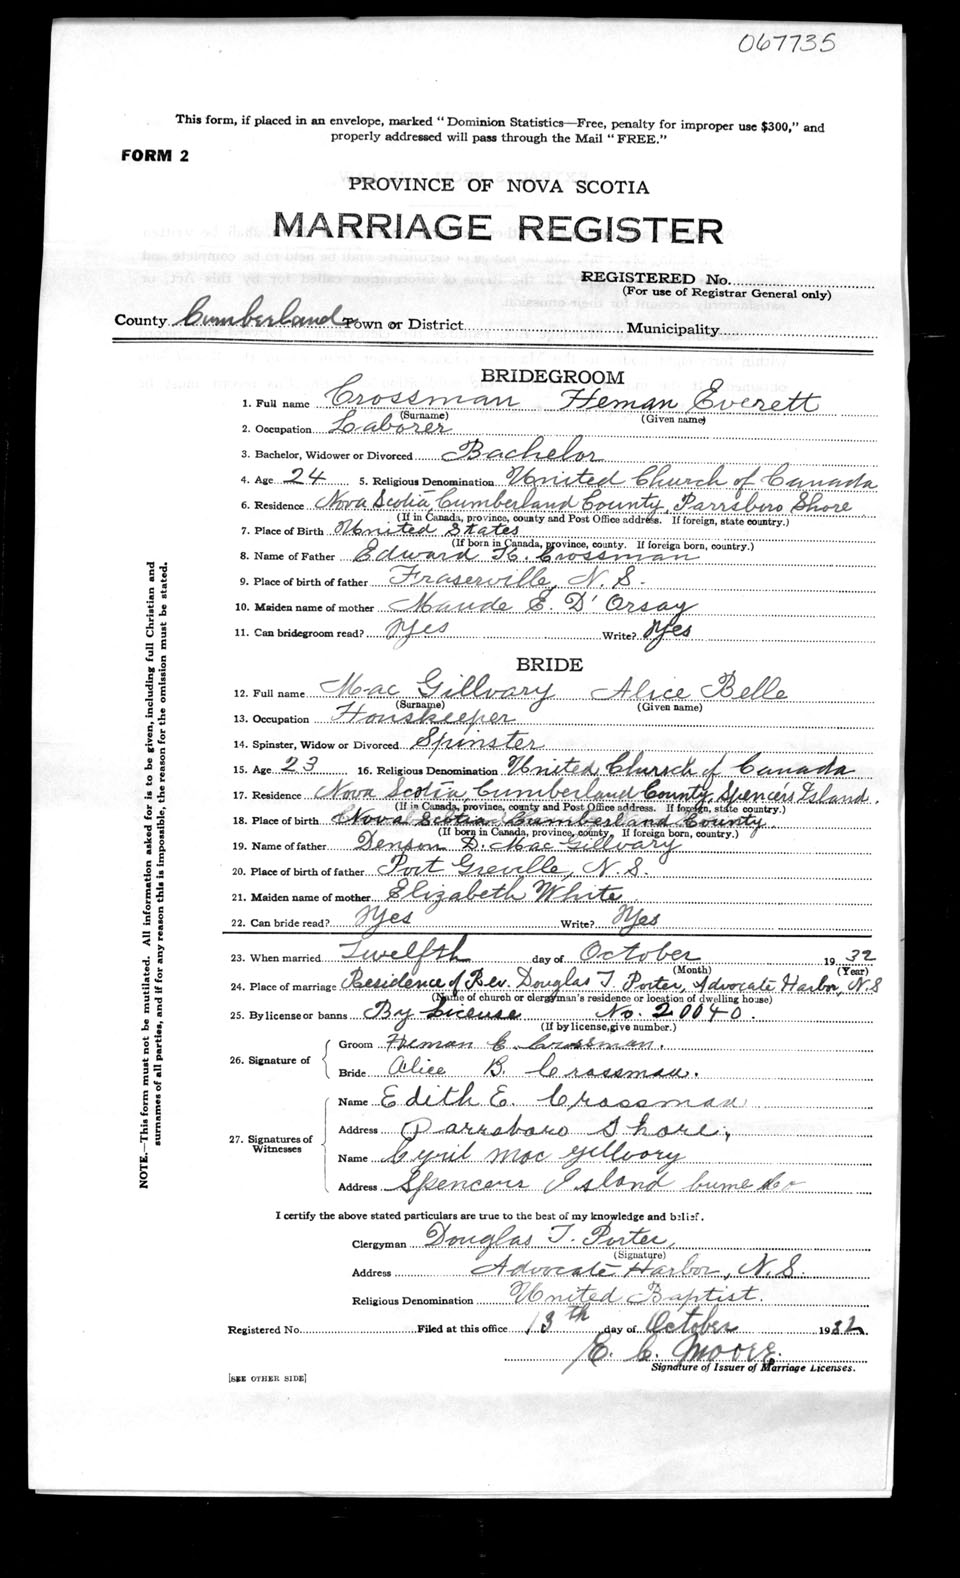 067735
This form, if placed in an envelope, marked "Dominion Statistics—Free, penalty for improper use $300," and
properly addressed will pass through the Mail "FREE."
FORM 2
PROVINCE OF NOVA SCOTIA
MARRIAGE REGISTER
REGISTERED No.
(For use of Registrar General only)
County Cumberland Town or District Municipality
BRIDEGROOM
1. Full name Crossman Heman Everett
(Surname) (Given name)
2. Occupation Laborer
3. Bachelor, Widower or Divorced Bachelor
4. Age 24 5. Religious Denomination United Church of Canada
6. Residence Nova Scotia, Cumberland County, Parrsboro Shore
(If in Canada, province, county and Post Office address. If foreign, state country.)
7. Place of Birth United States
(If born in Canada, province, county. If foreign born, country.)
8. Name of Father Edward H. Crossman
9. Place of birth of father Fraserville, N. S.
10. Maiden name of mother Maude E. D'Orsay
11. Can bridegroom read? Yes Write? Yes
BRIDE
12. Full name Mac Gillvary Alice Belle
(Surname) (Given name)
13. Occupation Houskeeper
14. Spinster, Widow or Divorced Spinster
15. Age 23 16. Religious Denomination United Church of Canada
17. Residence Nova Scotia, Cumberland County, Spencers Island.
(If in Canada, province, county and Post Office address. If foreign, state country.)
18. Place of birth Nova Scotia Cumberland County
(If born in Canada, province, county. If foreign born, country.)
19. Name of father Denson D. Mac Gillvary
20. Place of birth of father Port Greville, N. S.
21. Maiden name of mother Elizabeth White
22. Can bride read? Yes Write? Yes
23. When married Twelfth day of October 1932
(Month) (Year)
24. Place of marriage Residence of Rev. Douglas T. Porter, Advocate Harbor, N. S
(Name of church or clergyman's residence or location of dwelling house)
25. By license or banns By License No. 20040.
(If by license, give number.)
26. Signature of
Groom Heman E. Crossman.
Bride Alice B. Crossman.
27. Signatures of Witnesses
Name Edith E. Crossman
Address Parrsboro Shore,
Name Cyril Mac Gillvory
Address Spencers Island Cume Co
I certify the above stated particulars are true to the best of my knowledge and belief.
Clergyman Douglas T. Porter,
(Signature)
Address Advocate Harbor, N. S.
Religious Denomination United Baptist.
Registered No. Filed at this office 13th day of October 1932.
E. C. Moore.
Signature of Issuer of Marriage Licenses.
[SEE OTHER SIDE]
NOTE.—This form must not be mutilated. All information asked for is to be given, including full Christian and
surnames of all parties, and if for any reason this is impossible, the reason for the omission must be stated.